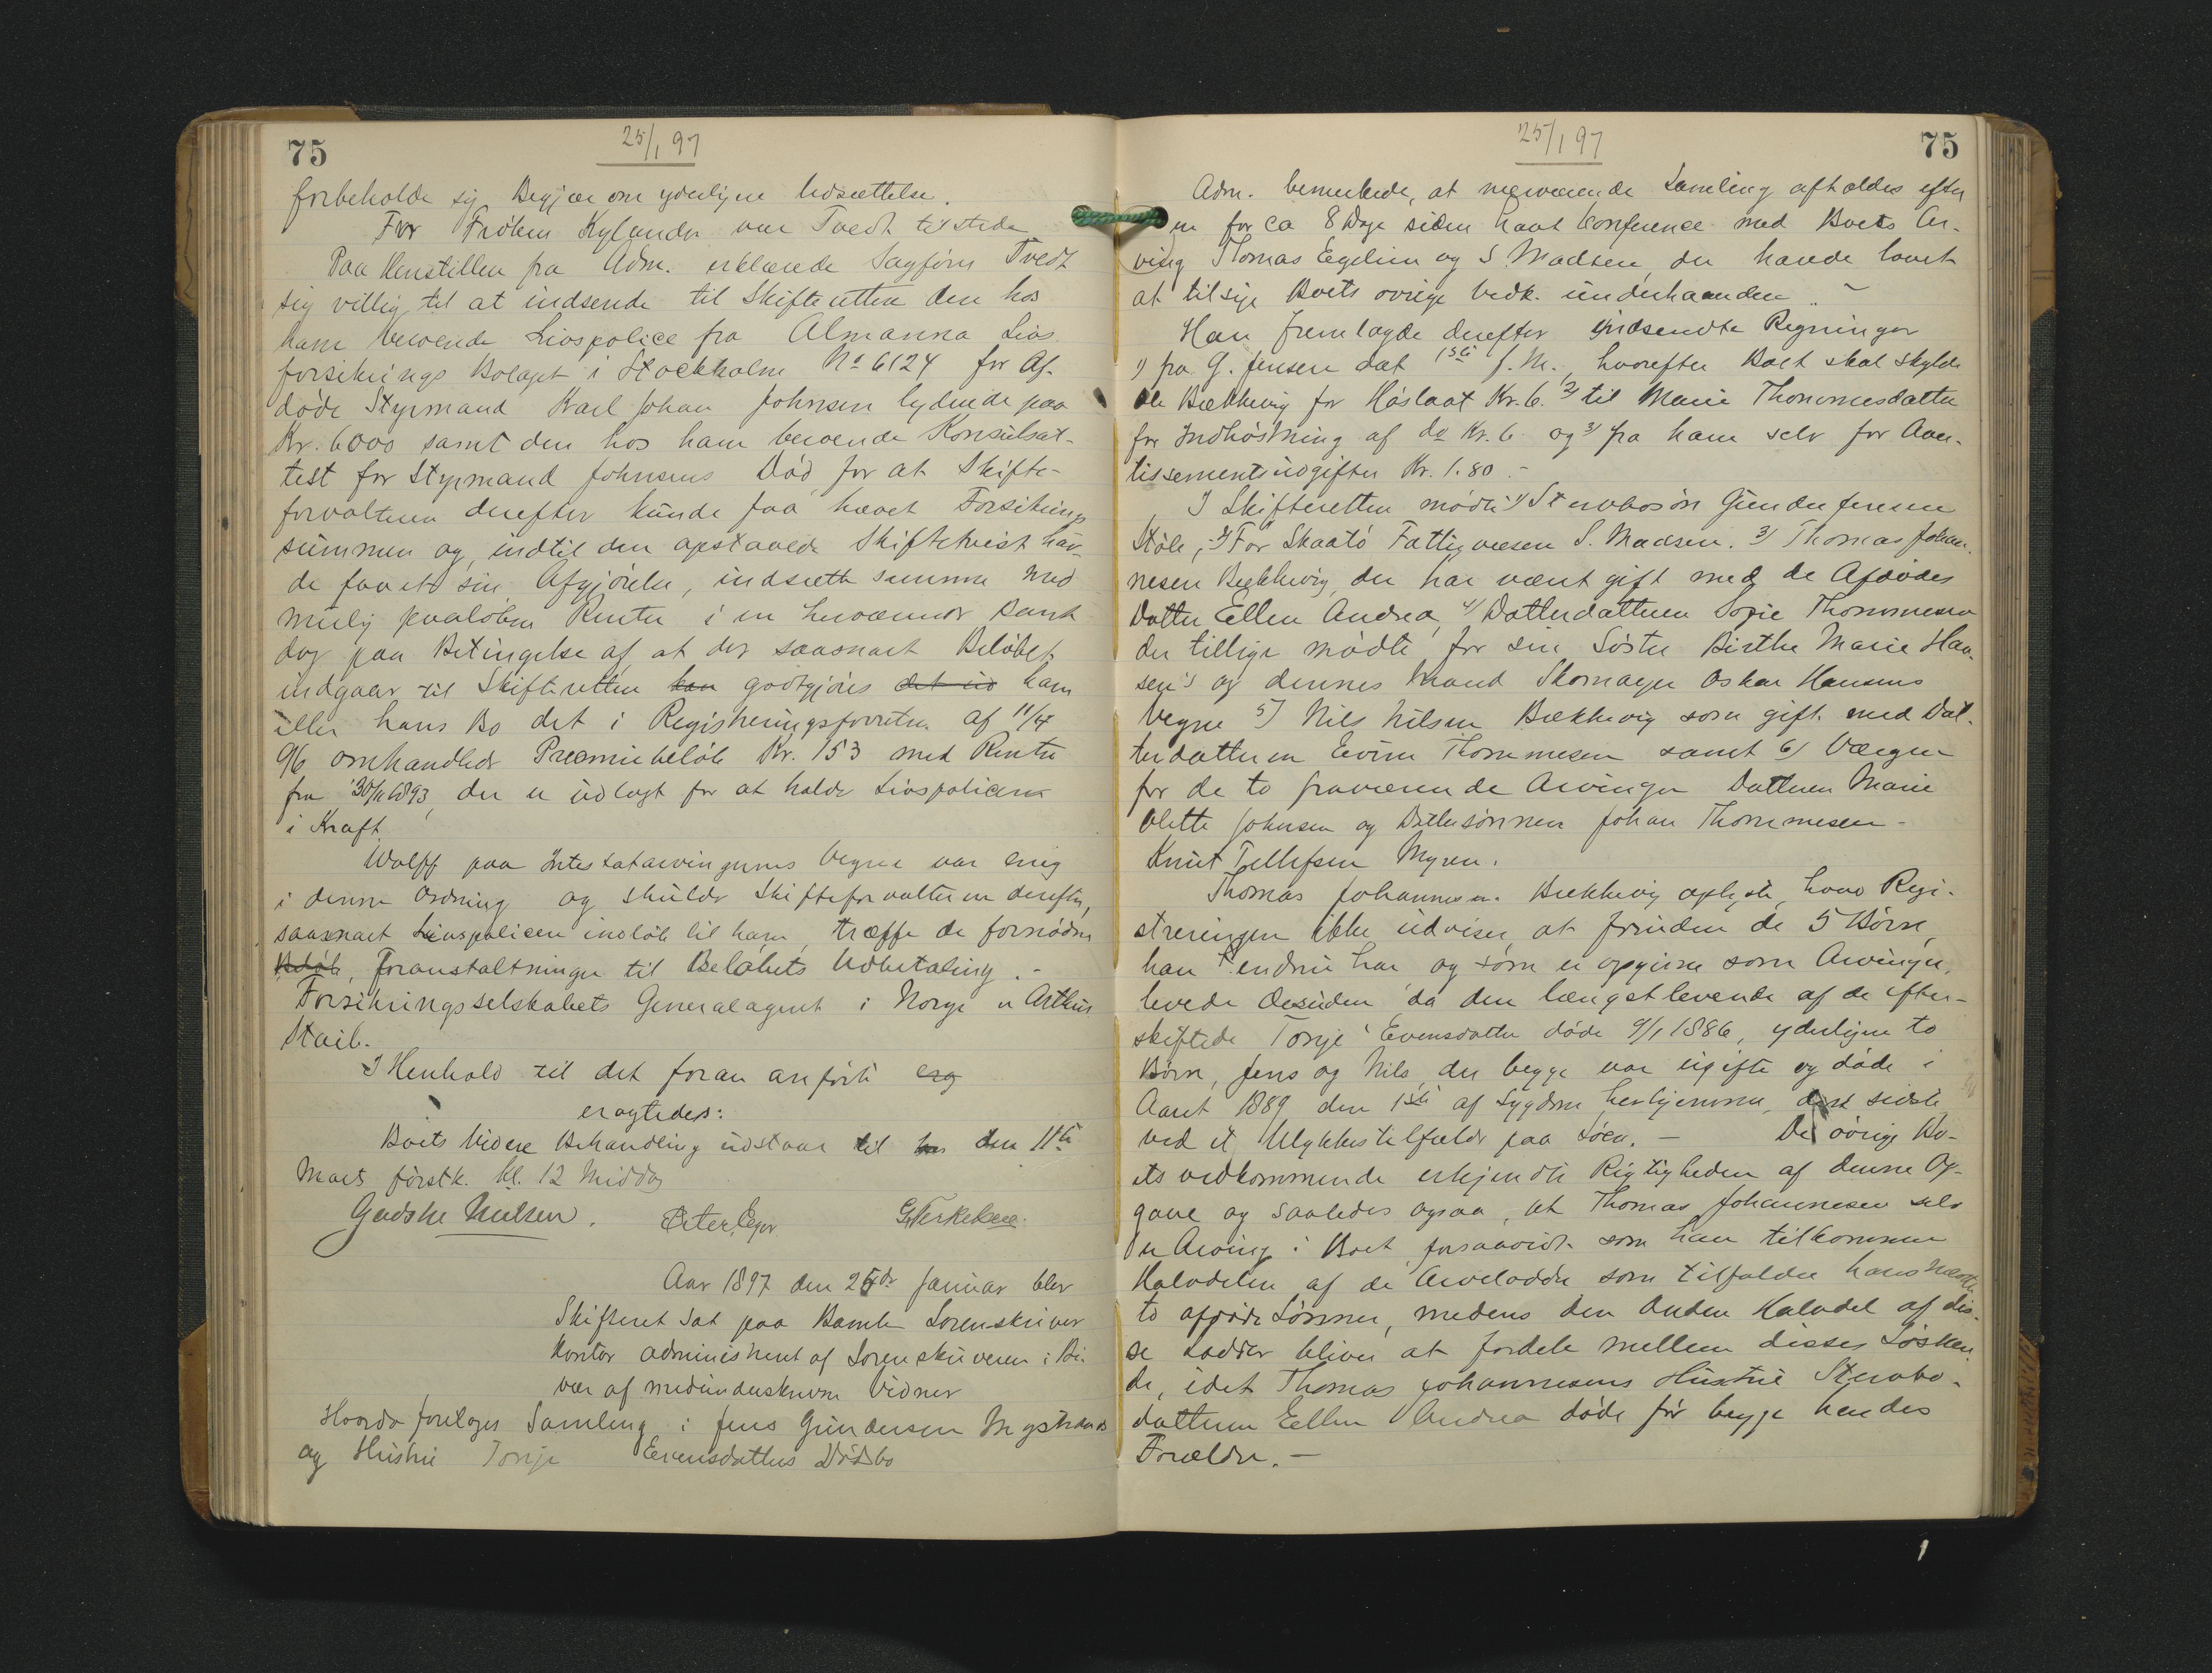 75
25/1 97
forbeholde sig Begjær om yderligere Udsættelse.
For Frøken Kylander var Tvedt tilstede
Paa Henstillen fra Adm. erklærede Sagfører Tvedt
sig villig til at indsende til Skifteretten den hos
ham beroende Livspolice fra Almanna Livs
forsikrings Bolaget i Stockholm No 6124 for Af-
døde Styrmand Karl Johan Johnsen lydende paa
Kr. 6000 samt den hos ham beroende Konsulsat-
test for Styrmand Johnsens Død, for at Skifte-
forvalteren derefter kunde faa hævet Forsikrings
summen og, indtil den opstaaede Skiftetvist hav-
de faaet sin Afgjørelse, indsætte samme med
mulig paaløben Renter i en herværende Bank
dog paa Betingelse af at der saasnart Beløbet
indgaar til Skifteretten han godtgjøres det ud ham
eller hans Bo det i Registreringsforretn. af 11/4
96 omhandlede Præmiebeløb Kr. 153 med Renter
fra 30/11 1893, der er udlagt for at holde Livspolicen
i Kraft.
Wolff paa Intestatarvingernes Vegne var enig
i denne Ordning og skulde Skifteforvalteren derefter,
saasnart Livspolicen indløb til ham, træffe de fornødne
Beløb, Foranstaltninger til Beløbets Udbetaling. -
Forsikringsselskabets Generalagent i Norge er Arthur
Stail.
I Henhold til det foran anførte erg
eragtedes:
Boets Videre Behandling udstaar til den 11te
Marts førstk. kl. 12 Middag
Gudske Nielsen. Peter Eger G. Terkelsen.
Aar 1897 den 25de Januar blev
Skifteret sat paa Bamle Sorenskriver
Kontor administreret af Sorenskriveren i Bi-
vær af medunderskrevne Vidner
Hvorda foretoges Samling i Jens Gundersen Mystrands
og Hustru Tonje Evensdatters Dødsbo
25/1 97
75
Adm. bemerkede, at nærværende Samling afholdes efter
en for ca 8 Dage siden havt Konference med Boets Ar-
ving Thomas Eegelien og S. Madsen, der havde lovet
at tilsige Boets øvrige Vedk. underhaanden. -
Han fremlagde derefter indsendte Regninger
1) fra G. Jensen dat 1ste f. M., hvorefter Boet skal skylde
Ole Bækkevig for Høslaat Kr. 6. 2) til Marie Thommesdatter
for Indhøstning af do Kr. 6 og 3) fra ham selv for Aver-
tissementsudgifter Kr. 1.80. -
I Skifteretten mødte 1) Stervbosøn Gunder Jensen
Støle, 2) For Skaatø Fattigvæsen S. Madsen. 3) Thomas Johan-
nesen Bækkevig, der har været gift med de Afdødes
Datter Ellen Andrea, 4) Datterdatteren Sofie Thommesen
der tillige mødte for sin Søster Birthe Marie Han-
sen's og dennes Mand Skomager Oskar Hansens
Vegne 5) Nils Nilsen Bækkevig som gift med Dat-
terdatteren Evine Thommesen samt 6) Værgen
for de to fraværende Arvinger Datteren Marie
Olette Johnsen og Dattersønnen Johan Thommesen -
Knut Tellefsen Myren.
Thomas Johannesen Bækkevig oplyste, hvad Regi-
streringen ikke udviser, at foruden de 5 Børn,
han endnu har og som er opgivne som Arvinger,
levede desuden da den længstlevende af de efter-
skiftede Tonje Evensdatter døde 9/1 1886, yderligere to
Børn, Jens og Nils, der begge var ugifte og døde i
Aaret 1889 den 1ste af Sygdom herhjemme, den sidste
ved et Ulykkestilfælde paa Søen. - De øvrige Bo-
ets vedkommende erkjendte Rigtigheden af denne Op-
gave og saaledes ogsaa, at Thomas Johannesen selv
er Arving i Boet forsaavidt som han tilkommer
Halvdelen af de Arvelodder som tilfaldt hans nævnte
to afdøde Sønner, medens den Anden Halvdel af dis-
se Lodder bliver at fordele mellem disses Søsken-
de, idet Thomas Johannesens Hustru Stervbo-
datteren Ellen Andrea døde før begge hendes
Forældre. -